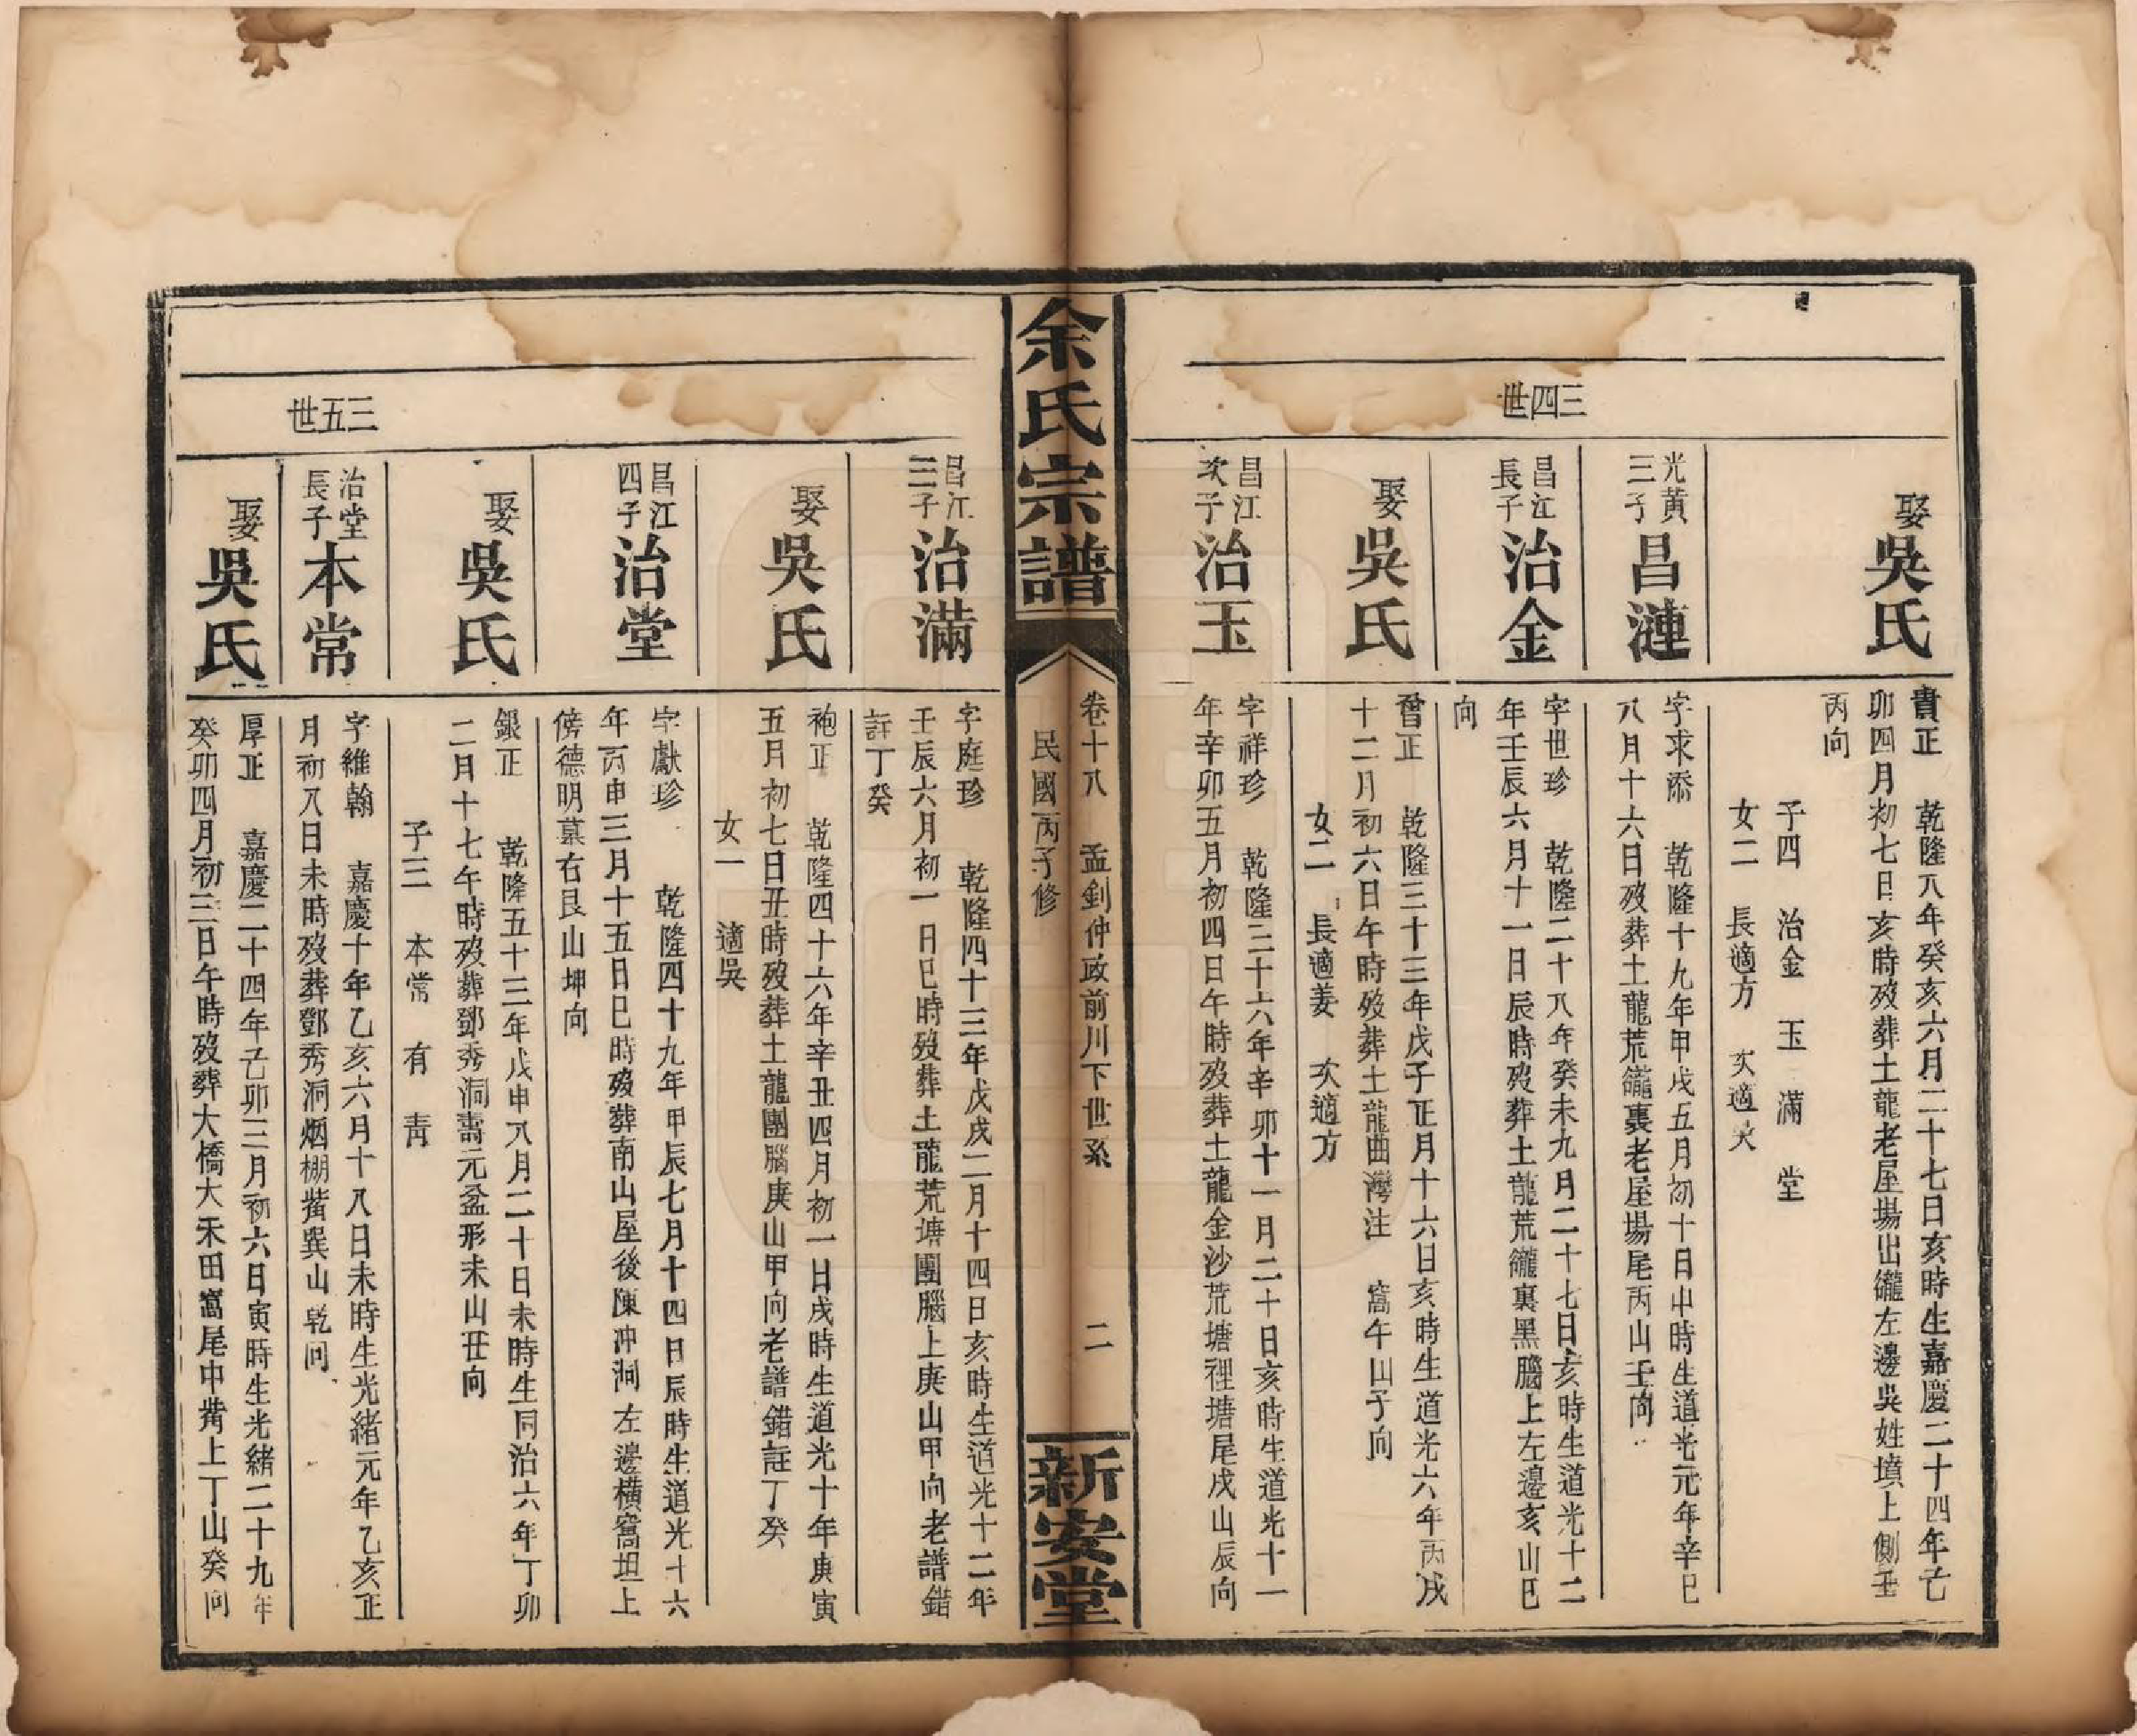 三四世
娶吳氏
貴正　乾隆八年癸亥六月二十七日亥時生嘉慶二十四年己
卯四月初七日亥時歿葬土龍老屋場出䃧左邊吳姓墳上側壬
丙向
子四　治金　玉　滿　堂
女二　長適方　次適
光黃
三子
昌漣
字求添　乾隆十九年甲戌五月初十日申時生道光元年辛巳
八月十六日歿葬土龍荒䃧裏老屋場尾丙山壬向
昌江
長子
治金
字世珍　乾隆二十八年癸未九月二十七日亥時生道光十二
年壬辰六月十一日辰時歿葬土龍荒䃧裏黑腦上左邊亥山巳
向
娶吳氏
曾正　乾隆三十三年戊子正月十六日亥時生道光六年丙戌
十二月初六日午時歿葬土龍曲灣注　窩午山子向
女二　長適姜　次適方
昌江
次子
治玉
字祥珍　乾隆三十六年辛卯十一月二十日亥時生道光十一
年辛卯五月初四日午時歿葬土龍金沙荒塘裡塘尾戌山辰向
余氏宗譜
卷十八　孟釗仲政前川下世系　二
民國丙子修
新安堂
昌江
三子
治滿
字庭珍　乾隆四十三年戊戌二月十四日亥時生道光十二年
壬辰六月初一日巳時歿葬土龍荒塘團腦上庚山甲向老譜錯
註丁癸
娶吳氏
袍正　乾隆四十六年辛丑四月初一日戌時生道光十年庚寅
五月初七日丑時歿葬土龍團腦庚山甲向老譜錯註丁癸
女一　適吳
昌江
四子
治堂
字獻珍　乾隆四十九年甲辰七月十四日辰時生道光十六
年丙申三月十五日巳時歿葬南山屋後陳冲洞左邊橫窩坦上
傍德明墓右艮山坤向
娶吳氏
銀正　乾隆五十三年戊申八月二十日未時生同治六年丁卯
二月十七午時歿葬鄧秀洞壽元盆形未山丑向
子三　本常　有　青
三五世
治堂
長子
本常
字維翰　嘉慶十年乙亥六月十八日未時生光緒元年乙亥正
月初八日未時歿葬鄧秀洞烟棚嘴巽山乾向
娶吳氏
厚正　嘉慶二十四年己卯三月初六日寅時生光緒二十九年
癸卯四月初三日午時歿葬大橋大禾田窩尾中嘴上丁山癸向